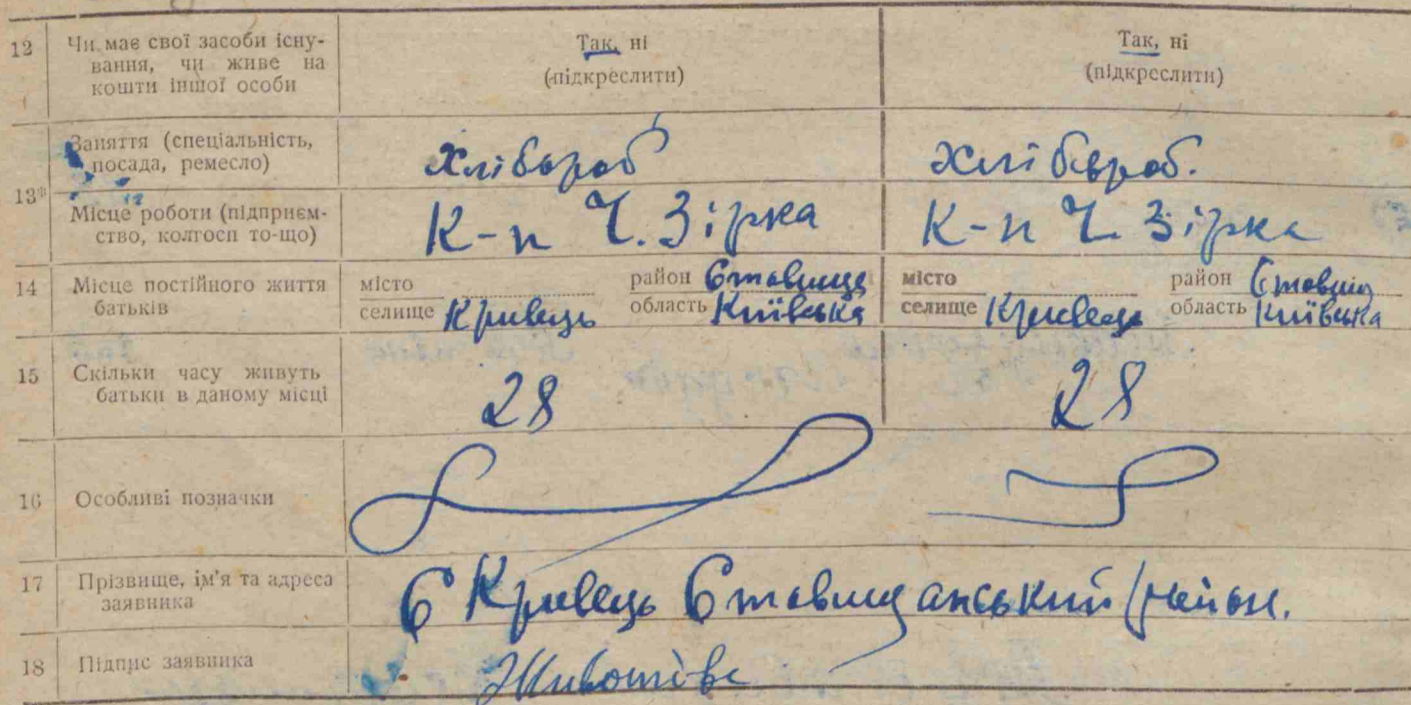 12 Чи має свої засоби існу-
вання, чи живе на
кошти іншої особи
Так, ні
(підкреслити)
Так, ні
(підкреслити)
13* Заняття (спеціальність,
посада, ремесло)
Хлібороб
Хлібороб.
Місце роботи (підприєм-
ство, колгосп то-що)
К-п Ч. Зірка
К-п Ч. Зірка
14 Місце постійного життя
батьків
місто район Ставище
селище Кривець область Київська
місто район Ставищ
селище Кривець область Київська
15 Скільки часу живуть
батьки в даному місці
28
28
16 Особливі позначки
17 Прізвище, ім'я та адреса
заявника
С Кривець Ставищанський район.
18 Підпис заявника
Животівс